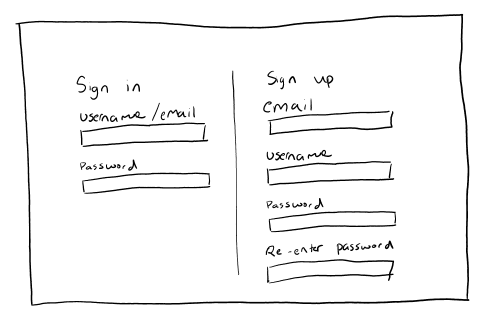 Sign in
username/email
Password
Sign up
email
username
Password
Re-enter password